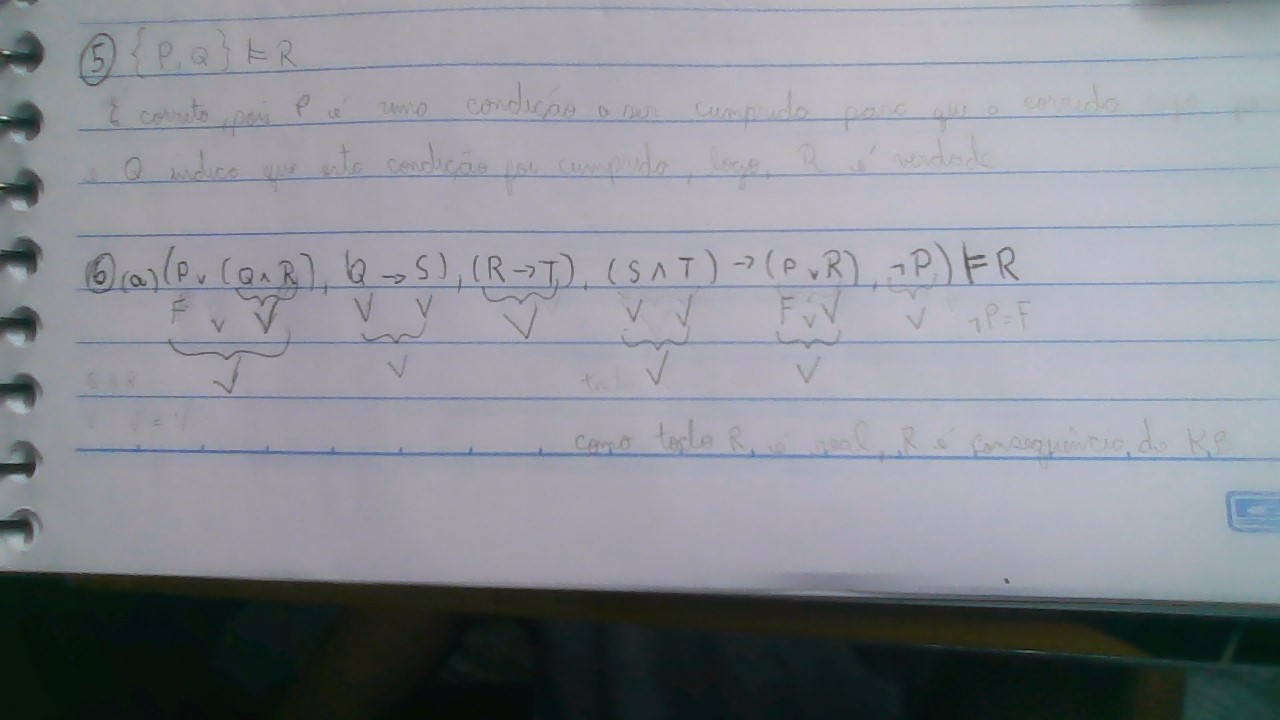 5 { P, Q } ⊨ R
É correto, pois P é uma condição a ser cumprida para que o corrida
e Q indica que esta condição foi cumprida, logo, R é verdade
6 (a) (P ∨ (Q ∧ R), (Q → S), (R → T), (S ∧ T) → (P ∨ R), ¬P) ⊨ R
F ∨ V V V V V V F ∨ V V ¬P = F
V V V V
V = V
como todo R é real, R é consequência do KB